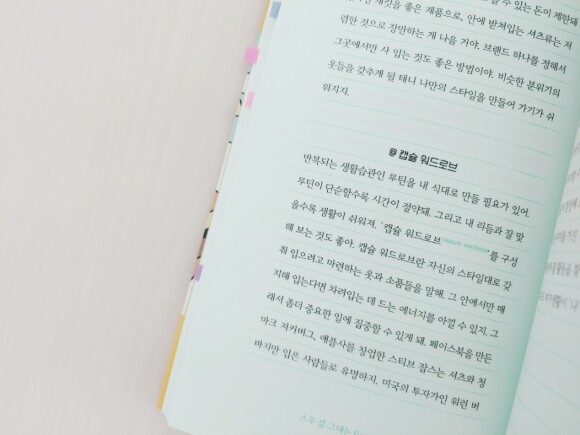 있는 돈이 제한돼
재킷을 좋은 제품으로, 안에 받쳐입는 셔츠류는 저
렴한 것으로 장만하는 게 나을 거야. 브랜드 하나를 정해서
그곳에서만 사 입는 것도 좋은 방법이야. 비슷한 분위기의
옷들을 갖추게 될 테니 나만의 스타일을 만들어 가기가 쉬
워지지.
캡슐 워드로브
반복되는 생활습관인 루틴을 내 식대로 만들 필요가 있어.
루틴이 단순할수록 시간이 절약돼. 그리고 내 리듬과 잘 맞
을수록 생활이 쉬워져. '캡슐 워드로브capsule wardrobe'를 구성
해 보는 것도 좋아. 캡슐 워드로브란 자신의 스타일대로 갖
춰 입으려고 마련하는 옷과 소품들을 말해. 그 안에서만 매
치해 입는다면 차려입는 데 드는 에너지를 아낄 수 있지. 그
래서 좀더 중요한 일에 집중할 수 있게 돼. 페이스북을 만든
마크 저커버그, 애플사를 창업한 스티브 잡스는 셔츠와 청
바지만 입은 사람들로 유명하지. 미국의 투자가인 워런 버
스무 살 그대는